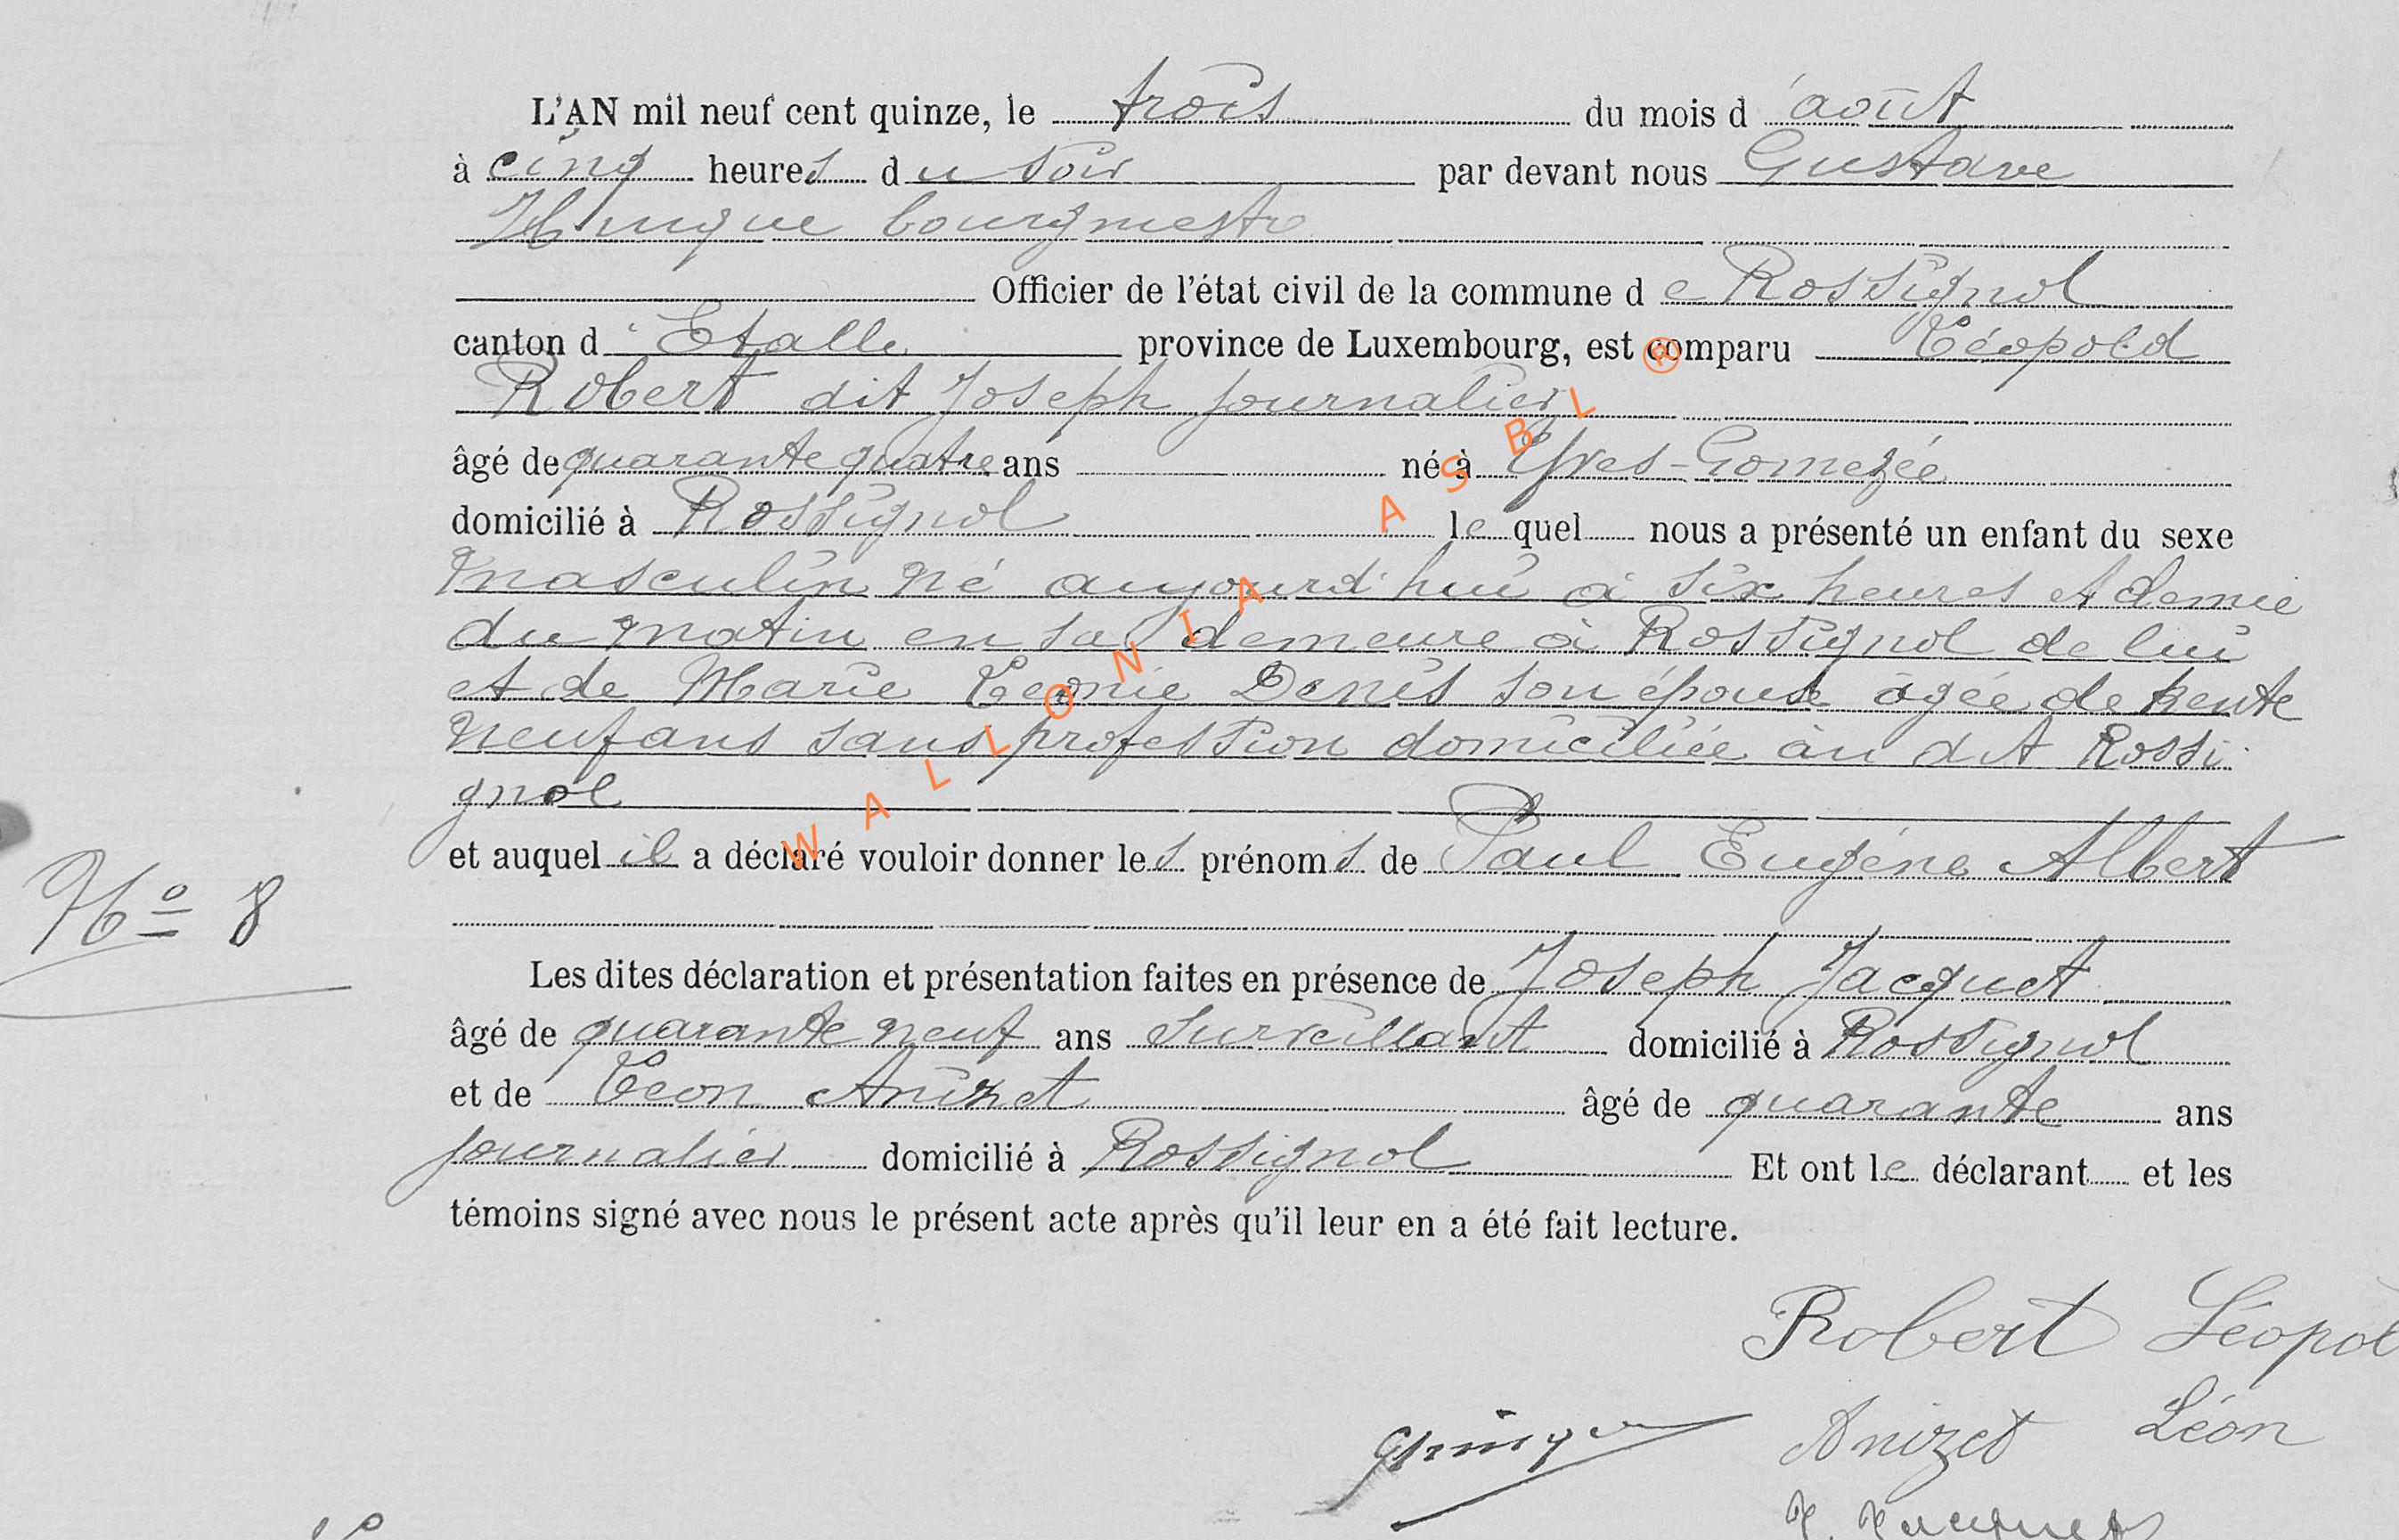 L'AN mil neuf cent quinze, le trois du mois d'août
à cinq heures du soir par devant nous Gustave
Hurique bourgmestre
Officier de l'état civil de la commune de Rossignol
canton d'Etalle province de Luxembourg, est comparu Léopold
Robert dit Joseph journalier
âgé de quarante quatre ans né à Yves-Gomezée
domicilié à Rossignol lequel nous a présenté un enfant du sexe
masculin né aujourd'hui à six heures et demie
du matin en sa demeure à Rossignol de lui
et de Marie Léonie Denis son épouse âgée de trente
neuf ans sans profession domiciliée au dit Rossi
gnol
et auquel il a déclaré vouloir donner les prénoms de Paul Eugène Albert
No 8
Les dites déclaration et présentation faites en présence de Joseph Jacquet
âgé de quarante neuf ans Surveillant domicilié à Rossignol
et de Léon Anizet âgé de quarante ans
journalier domicilié à Rossignol Et ont le déclarant et les
témoins signé avec nous le présent acte après qu'il leur en a été fait lecture.
Robert Léopol
Anizet Léon
WALLONIA ASBL ®